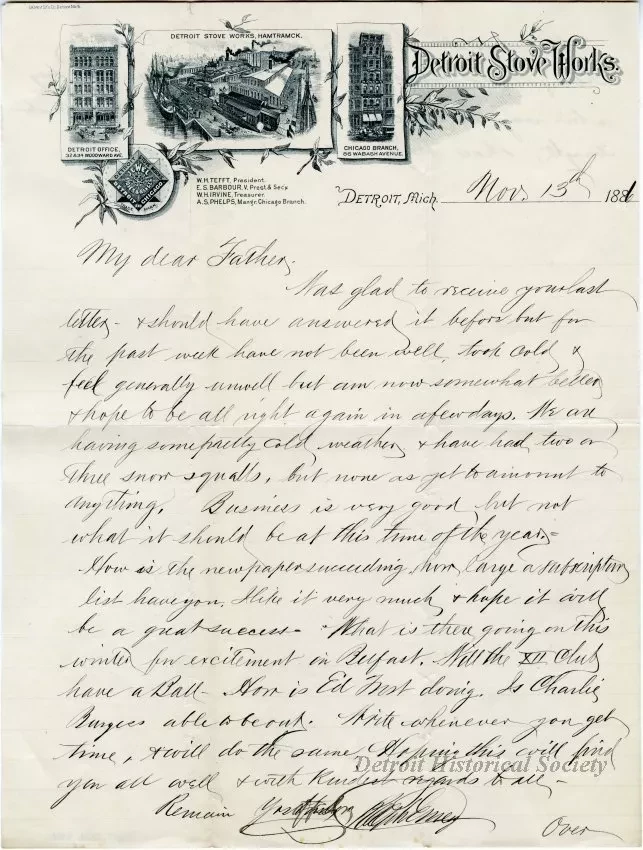 DETROIT STOVE WORKS, HAMTRAMCK.
Detroit Stove Works.
DETROIT OFFICE,
32 & 34 WOODWARD AVE.
CHICAGO BRANCH,
86 WABASH AVENUE.
W. H. TEFFT, President.
E. S. BARBOUR, V. Prest & Secy.
W. H. IRVINE, Treasurer.
A. S. PHELPS, Mangr. Chicago Branch.
DETROIT, Mich. Nov. 13th 1886
My dear Father,
Was glad to receive your last
letter - & should have answered it before but for
the past week have not been well, took cold &
feel generally unwell but am now somewhat better
& hope to be all right again in a few days. We are
having some pretty cold weather & have had two or
three snow squalls, but none as yet to amount to
anything. Business is very good but not
what it should be at this time of the year. -
How is the new paper succeeding, how large a subscription
list have you. I like it very much & hope it will
be a great success - What is there going on this
winter for excitement in Belfast. Will the XII Club
have a Ball - How is Ed West doing. Is Charlie
Burgess able to be out. Write whenever you get
time, & will do the same. Hoping this will find
you all well & with kindest regards to all -
Remain Your
Over
Detroit Historical Society